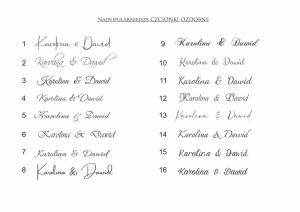 Najpopularniejsze CZCIONKI OZDOBNE
1 Karolina & Dawid
2 Karolina & Dawid
3 Karolina & Dawid
4 Karolina & Dawid
5 Karolina & Dawid
6 Karolina & Dawid
7 Karolina & Dawid
8 Karolina & Dawid
9 Karolina & Dawid
10 Karolina & Dawid
11 Karolina & Dawid
12 Karolina & Dawid
13 Karolina & Dawid
14 Karolina & Dawid
15 Karolina & Dawid
16 Karolina & Dawid